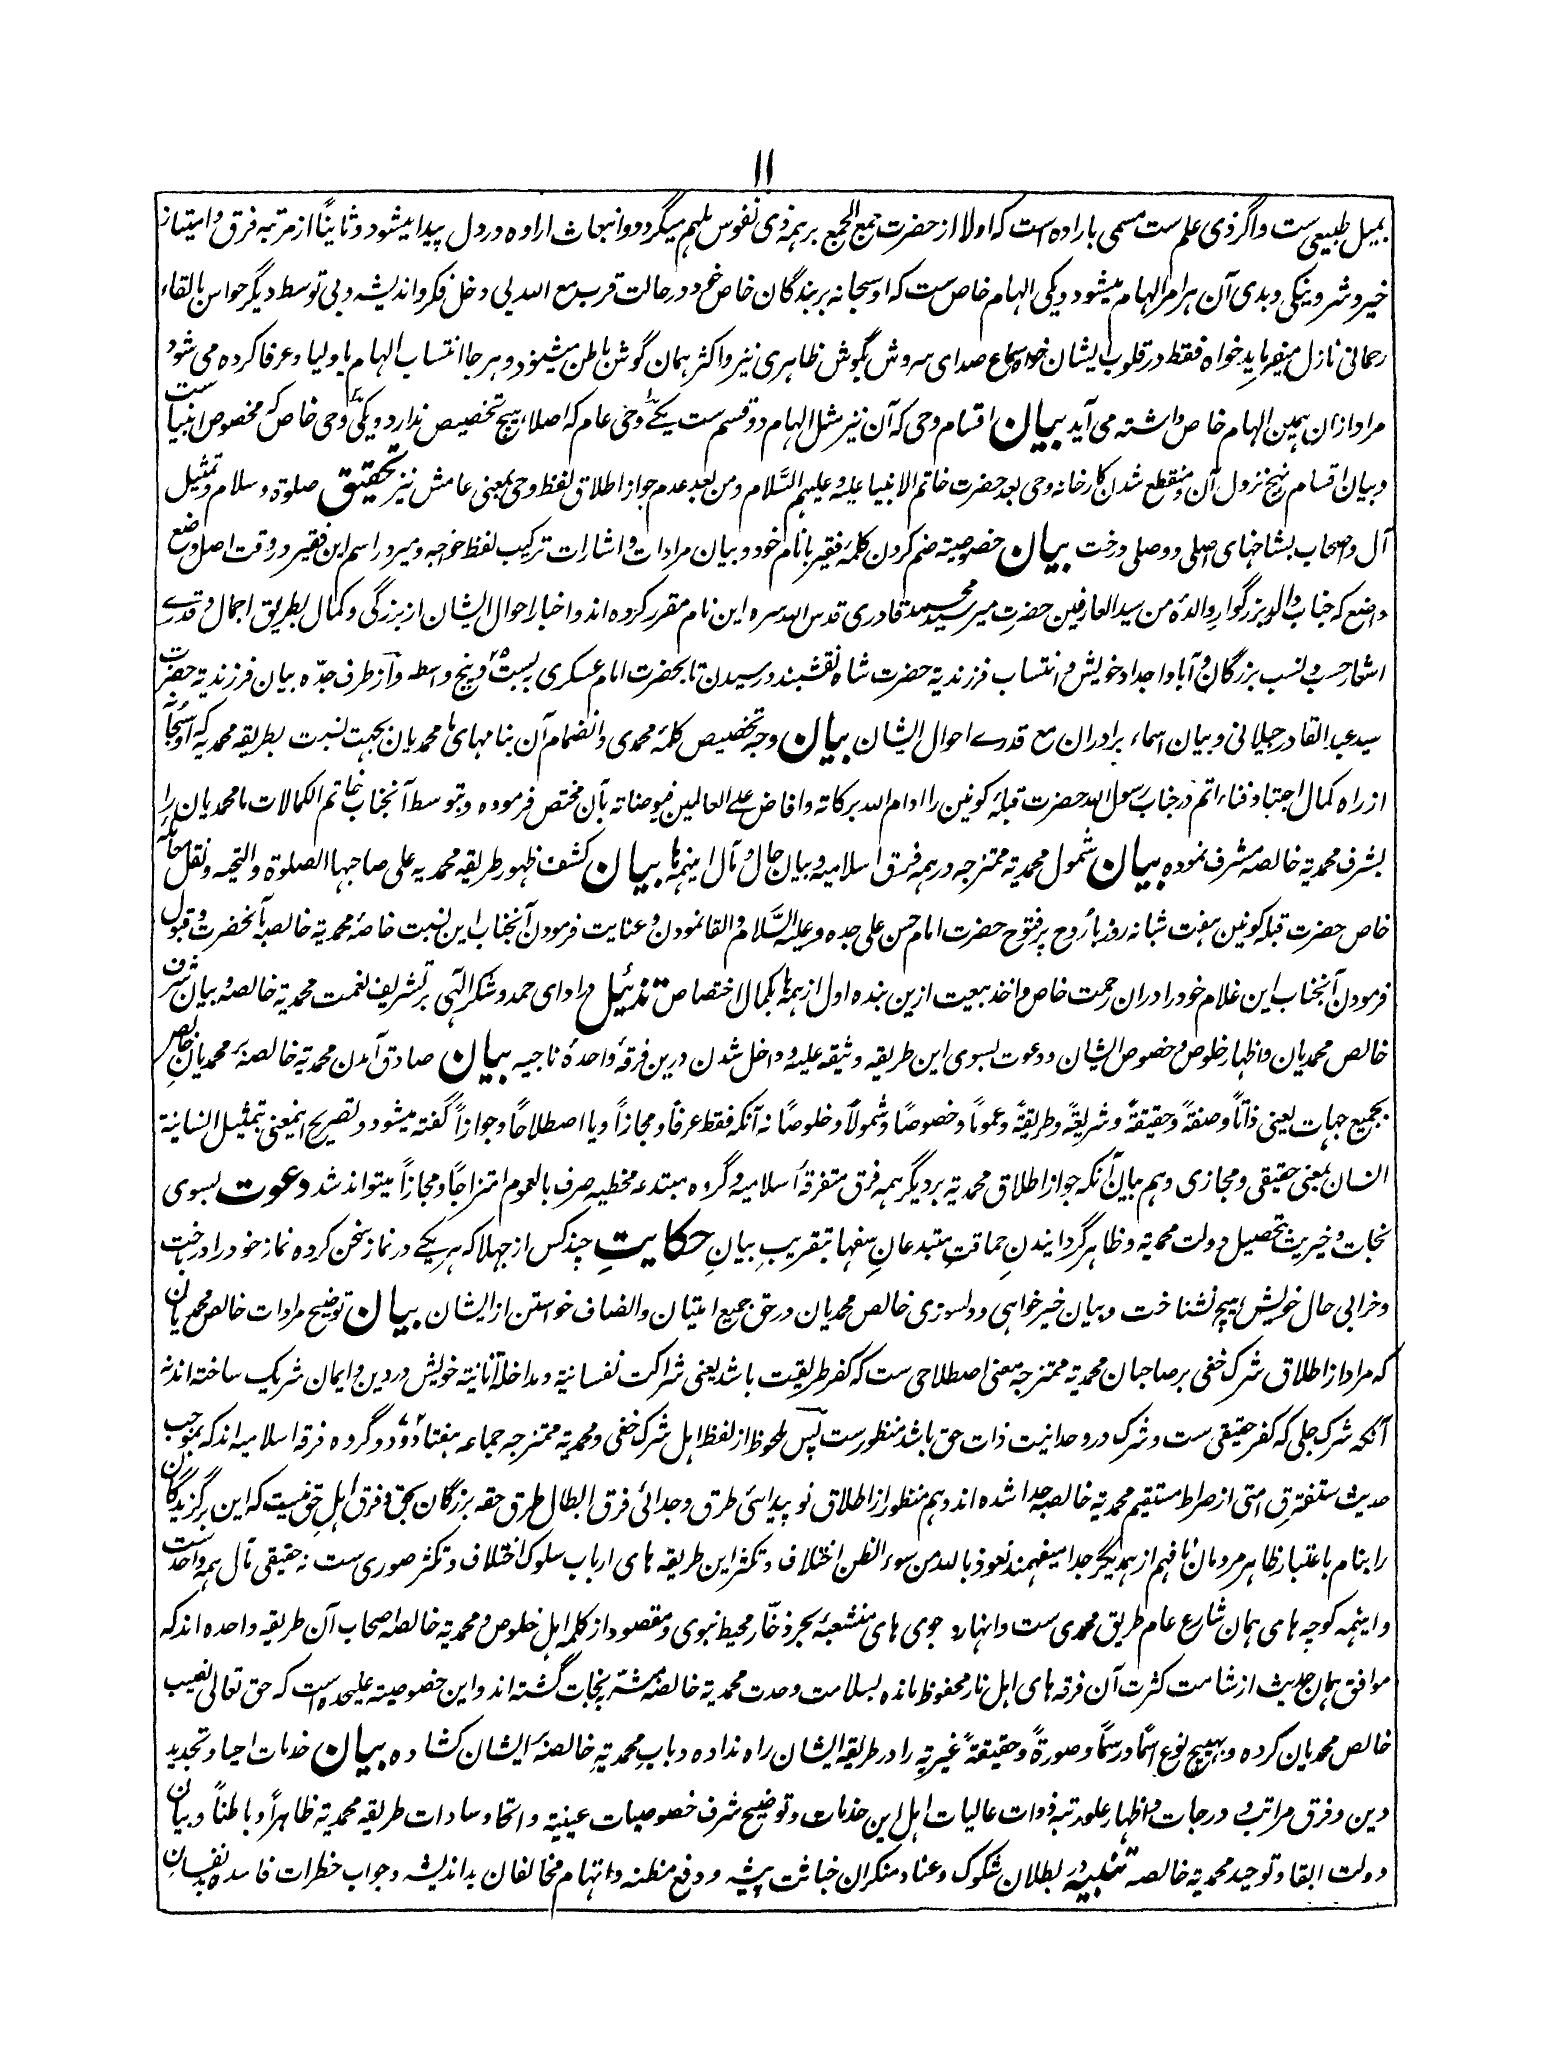 ۱۱
بمیل طبیعی ست و اگر ذی علم ست مسمی بارادہ است کہ اولا از حضرت جمع الجمع بر ہمہ ذی نفوس ملہم میگردد و انبعاث ارادہ در دل پیدا میشود و ثانیاً از مرتبہ فرق و امتیاز
خیر و شر و نیکی و بدی آن ہر امر الہام میشود و یکی الہام خاص ست کہ او سبحانہ بر بندگان خاص خود در حالت قرب مع اللہ بی دخل فکر و اندیشہ و بی توسط دیگر حواس بالقاء
رحمانی نازل میفرماید خواہ فقط در قلوب ایشان خواہ بسماع صدای سروش بگوش ظاہری نیز و اکثر ہمان گوش باطن میشنود و ہر جا انتساب الہام باولیا و عرفا کردہ می شود
مراد ازان ہمین الہام خاص داشتہ می آید بیان اقسام وحی کہ آن نیز مثل الہام دو قسم ست یکے وحی عام کہ اصلا ہیچ تخصیص ندارد و یکی وحی خاص کہ مخصوص انبیا ست
و بیان اقسام نہج نزول آن و منقطع شدن کارخانہ وحی بعد حضرت خاتم الانبیا علیہ و علیہم السَّلام و من بعد عدم جواز اطلاق لفظ وحی بمعنی عامش نیز تحقیق صلوة و سلام و تمثیل
آل و اصحاب بشاخہای اصلی و وصلی درخت بیان خصوصیتہ ضم کردن کلمۂ فقیر با نام خود و بیان مرادات و اشارات ترکیب لفظ خواجہ و میر در اسم این فقیر در وقت اصل وضع
واضع کہ جناب والد بزرگوار والدۂ من سید العارفین حضرت میر سید محمد قادری قدس اللہ سرہ این نام مقرر کردہ اند و اخبار احوال ایشان از بزرگی و کمال بطریق اجمال و قدرے
اشعار حسب و نسب بزرگان و آبا و اجداد خویش و انتساب فرزندیة حضرت شاہ نقشبند و رسیدن تا بحضرت امام عسکری بہ بست و پنج واسطہ و از طرف جدّہ بیان فرزندیة حضرت
سید عبد القادر جیلانی و بیان اسماء برادران مع قدرے احوال ایشان بیان وجہ تخصیص کلمۂ محمدی و انضمام آن بنامہای ما محمدیان بجہت نسبت بطریقہ محمدیہ کہ او سبحانہ
از راہ کمال اجتبا و فناء اتم در جناب رسول اللہ حضرت قبلۂ کونین را ادام اللہ برکاتہ و افاض علے العالمین فیوضاتہ بآن مختص فرمودہ و بتوسط آنجناب خاتم الکمالات ما محمدیان را
بشرف محمدیة خالصہ مشرف نمودہ بیان شمول محمدیة ممتزجہ در ہمہ فرق اسلامیہ و بیان حال و مآل اینہا بیان کشف ظہور طریقہ محمدیہ علی صاحبہا الصلوة و التحیہ و نقل معاملہ
خاص حضرت قبلہ کونین ہفت شبانہ روز با روح پر فتوح حضرت امام حسن علی جدہ و علیہ السَّلام و القا نمودن و عنایت فرمودن آنجناب این نسبت خاصۂ محمدیة خالصہ بآنحضرت و قبول
فرمودن آنجناب این غلام خود را دران رحمت خاص و اخذ بیعت ازین بندہ اول از ہمہ ہا بکمال اختصاص تذئیل در ادای حمد و شکر الٰہی بر تشریف نعمت محمدیة خالصہ و بیان شرف
خالص محمدیان و اظہار خلوص و خصوص ایشان و دعوت بسوی این طریقہ وثیقہ علیہ و داخل شدن درین فرقۂ واحدۂ ناجیہ بیان صادق آمدن محمدیة خالصہ بر محمدیانِ خالص
بجمیع جہات یعنی ذاتاً و صفةً و حقیقةً و شریعةً و طریقةً و عموماً و خصوصاً و شمولاً و خلوصاً نہ آنکہ فقط عرفاً و مجازاً و یا اصطلاحاً و جوازاً گفتہ میشود و تصریح اینمعنی بتمثیل انسانیة
انسان بمعنی حقیقی و مجازی و ہم بیان آنکہ جواز اطلاق محمدیة بر دیگر ہمہ فرق متفرقۂ اسلامیہ و گروہ مبتدعہ مخطیہ صرف بالعموم امتزاجاً و مجازاً میتواند شد دعوت بسوی
نجات و خیریت تحصیل دولت محمدیة و ظاہر گردانیدنِ حماقت مبتدعانِ سفہا بتقریبِ بیانِ حکایتِ چند کس از جہلا کہ ہر یکے در نماز سخن کردہ نماز خود را در باخت
و خرابی حال خویش ہیچ نشناخت و بیان خیر خواہی و دلسوزی خالص محمدیان در حق جمیع امتیان و انصاف خواستن از ایشان بیان توضیح مرادات خالص محمدیان
کہ مراد از اطلاق شرک خفی بر صاحبان محمدیة ممتزجہ معنی اصطلاحی ست کہ کفر طریقت باشد یعنی شراکت نفسانیة و مداخلة انانیة خویش در دین و ایمان شریک ساختہ اند نہ
آنکہ شرک جلی کہ کفر حقیقی ست و شرک در وحدانیت ذات حق باشد منظور ست پس ملحوظ از لفظ اہل شرک خفی و محمدیة ممتزجہ جماعہ ہفتاد و دو گروہ فرقہ اسلامیہ اند کہ بموجب
حدیث ستفترق امتی از صراط مستقیم محمدیة خالصہ جدا شدہ اند و ہم منظور از اطلاق نو پیدائی طرق و جدائی فرق ابطال طرق حقہ بزرگان بحق و فرق اہلِ حق نیست کہ این برگزیدگان
را بنام باعتبار ظاہر مردمان نافہم از ہمدیگر جدا میفہمند نعوذ باللہ من سوء الظن اختلاف و تکثر این طریقہ ہای ارباب سلوک اختلاف و تکثر صوری ست نہ حقیقی مآل ہمہ واحد ست
و اینہمہ کوچہ ہای ہمان شارع عام طریق محمدی ست و انہار و جوی ہای منشعبۂ بحر ذخّار محیط نبوی و مقصود از کلمہ اہل خلوص و محمدیة خالصہ اصحاب آن طریقہ واحدہ اند کہ
موافق ہمان حدیث از شامت کثرت آن فرقہ ہای اہل نار محفوظ ماندہ بسلامت وحدت محمدیة خالصہ مبشر بنجات گشتہ اند و این خصوصیتہ علیحدہ است کہ حق تعالی نصیب
خالص محمدیان کردہ و بہیچ نوع اسماً و رسماً و صورةً و حقیقةً غیریة را در طریقۂ ایشان راہ ندادہ و باب محمدیة خالصہ بر ایشان کشادہ بیان خدمات احیا و تجدید
دین و فرق مراتب و درجات و اظہار علو رتبہ ذوات عالیات اہل این خدمات و توضیح شرف خصوصیات عینیة و اتحاد سادات طریقہ محمدیة ظاہراً و باطناً و بیان
دولت ابقا و توحید محمدیة خالصہ تنبیہ در بطلان شکوک و عناد منکران خباثت پیشہ و دفع مظنہ و اتہام مخالفان بداندیشہ و جواب خطرات فاسدہ بدنفسان